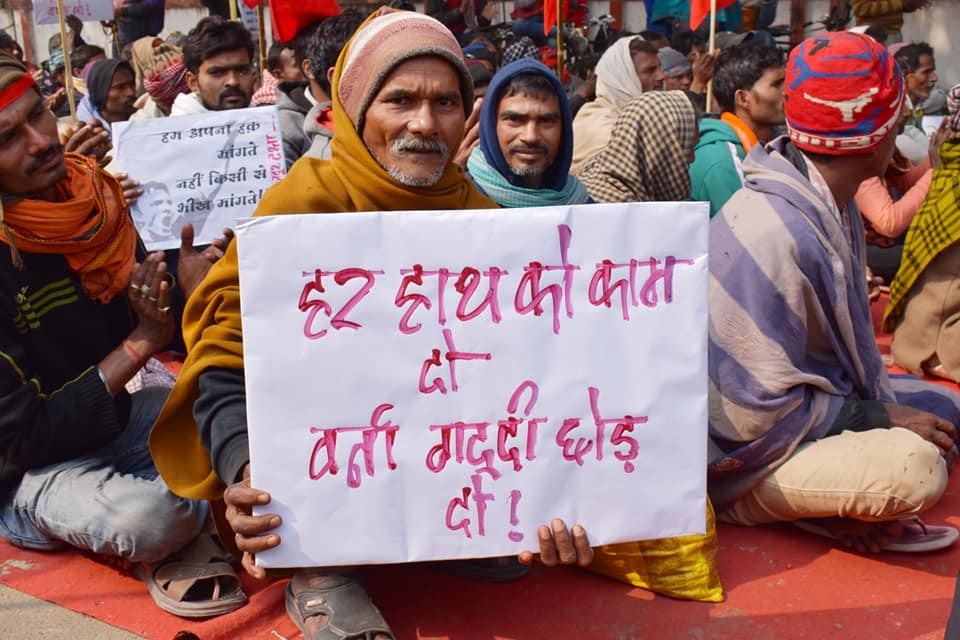 हम अपना हक़
मांगते
नहीं किसी से
भीख मांगते!
हर हाथ को काम
दो
वर्ना गद्दी छोड़
दो!